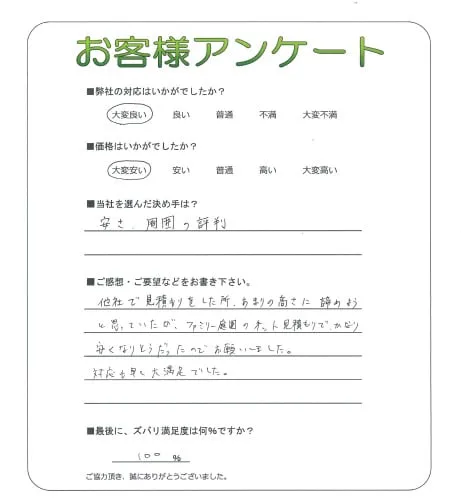 お客様アンケート
■弊社の対応はいかがでしたか？
大変良い 良い 普通 不満 大変不満
■価格はいかがでしたか？
大変安い 安い 普通 高い 大変高い
■当社を選んだ決め手は？
安さ、周囲の評判
■ご感想・ご要望などをお書き下さい。
他社で見積もりをした所、あまりの高さに諦めよう
と思っていたが、ファミリー庭園のネット見積もりでかなり
安くなりそうだったのでお願いしました。
対応も早く大満足でした。
■最後に、ズバリ満足度は何%ですか？
100 %
ご協力頂き、誠にありがとうございました。